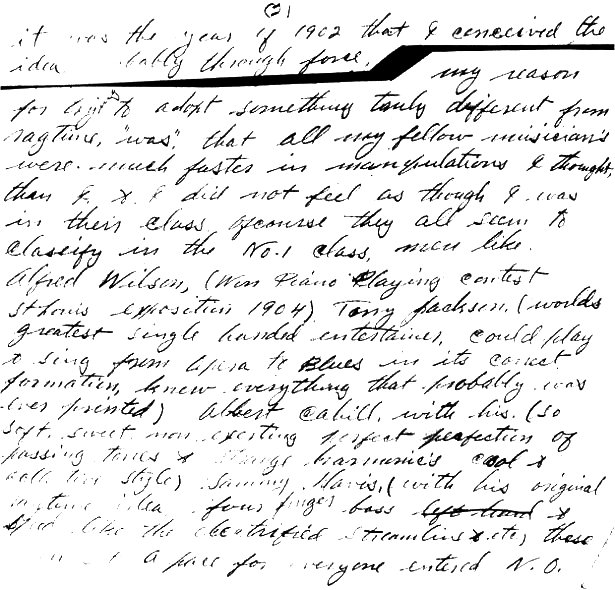 (2)
it was the year of 1902 that I conceived the
idea bably through force,
my reason
for trying to adopt something truly different from
ragtime, "was", that all my fellow musician's
were much faster in manipulations I thought,
than I, & I did not feel as though I was
in their class, ofcourse they all seem to
classify in the No. 1 class, men like
Alfred Wilson, (Won Piano Playing contest
St Louis exposition 1904) Tony Jackson, (worlds
greatest single handed entertainer, could play
& sing from opera to Blues in its correct
formation, knew everything that probably was
ever printed) Albert Cahill, with his (so
soft, sweet, non exerting perfect perfection of
passing tones & strange harmonic's cool &
style) Sammy Davis, (with his original
ragtime idea four finger bass left hand &
like the electrified streamline & etc, these
a pace for everyone entered N. O.